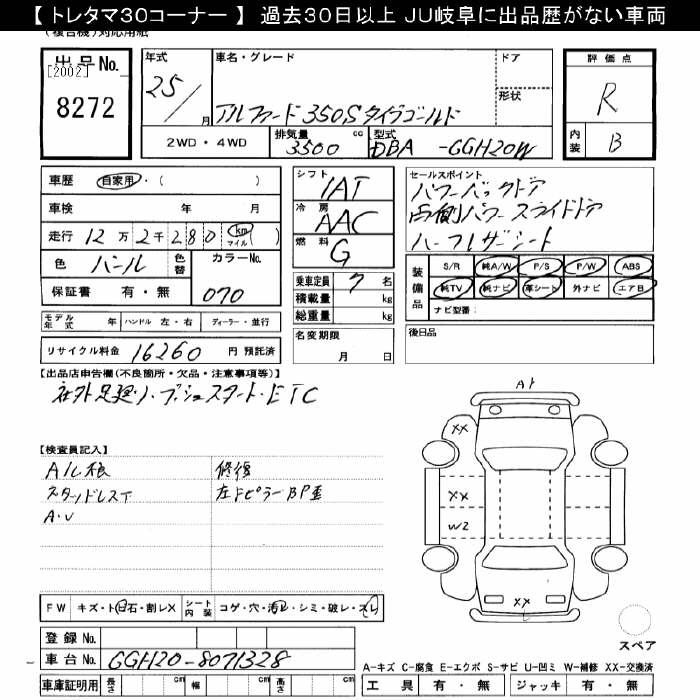 【 トレタマ30コーナー 】 過去30日以上 JU岐阜に出品歴がない車両
(複合機)対応用紙
出品No.
[2002]
8272
年式
25/
月
車名・グレード
アルファード350Sタイプゴールド
ドア
形状
2WD・4WD
排気量
3500
cc
型式
DBA -GGH20W
評価点
R
内装
B
車歴 自家用・( )
車検 年 月
走行 12万2千280 km マイル ( )
色 パール 色替 カラーNo.
保証書 有・無 070
モデル年式 年 ハンドル 左・右 ディーラー・並行
リサイクル料金 16260 円 預託済
シフト
IAT
冷房
AAC
燃料
G
乗車定員 7 名
積載量 kg
総重量 kg
名変期限
月 日
セールスポイント
パワーバックドア
両側パワースライドドア
ハーフレザーシート
装備品
S/R 純A/W P/S P/W ABS
純TV 純ナビ 革シート 外ナビ エアB
ナビ型番:
後日品
【出品店申告欄(不良箇所・欠品・注意事項等)】
プッシュスタート・ETC
【検査員記入】
スタッドレスT
A・U
修復
左Fピラー BP歪
FW キズ・ト ビ石・割レX シート内装 コゲ・穴・汚レ・シミ・破レ・スレ
登録 No.
車台 No. GGH20-8071328
車庫証明用 長さ cm 幅 cm 高さ cm
A1
XX
XX
W2
XX
スペア
A-キズ C-腐食 E-エクボ S-サビ U-凹ミ W-補修 XX-交換済
工具 有・無 ジャッキ 有・無